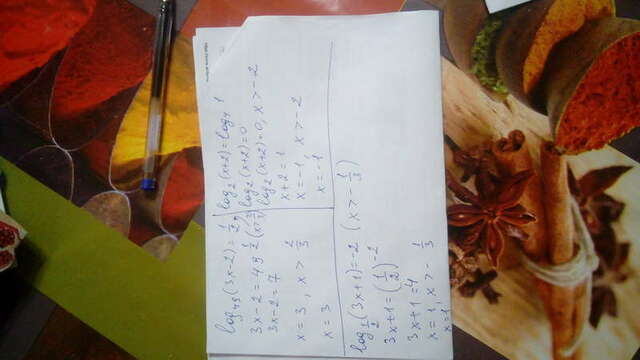 log₄₉(3x-2)=1/2,
3x-2=49^(1/2) (x>2/3)
3x-2=7
x=3, x>2/3
x=3
log₂(x+2)=log₄1
log₂(x+2)=0
log₂(x+2)=0, x>-2
x+2=1
x=-1, x>-2
x=-1
log_(1/2)(3x+1)=-2 (x>-1/3)
3x+1=(1/2)^(-2)
3x+1=4
x=1, x>-1/3
x=1